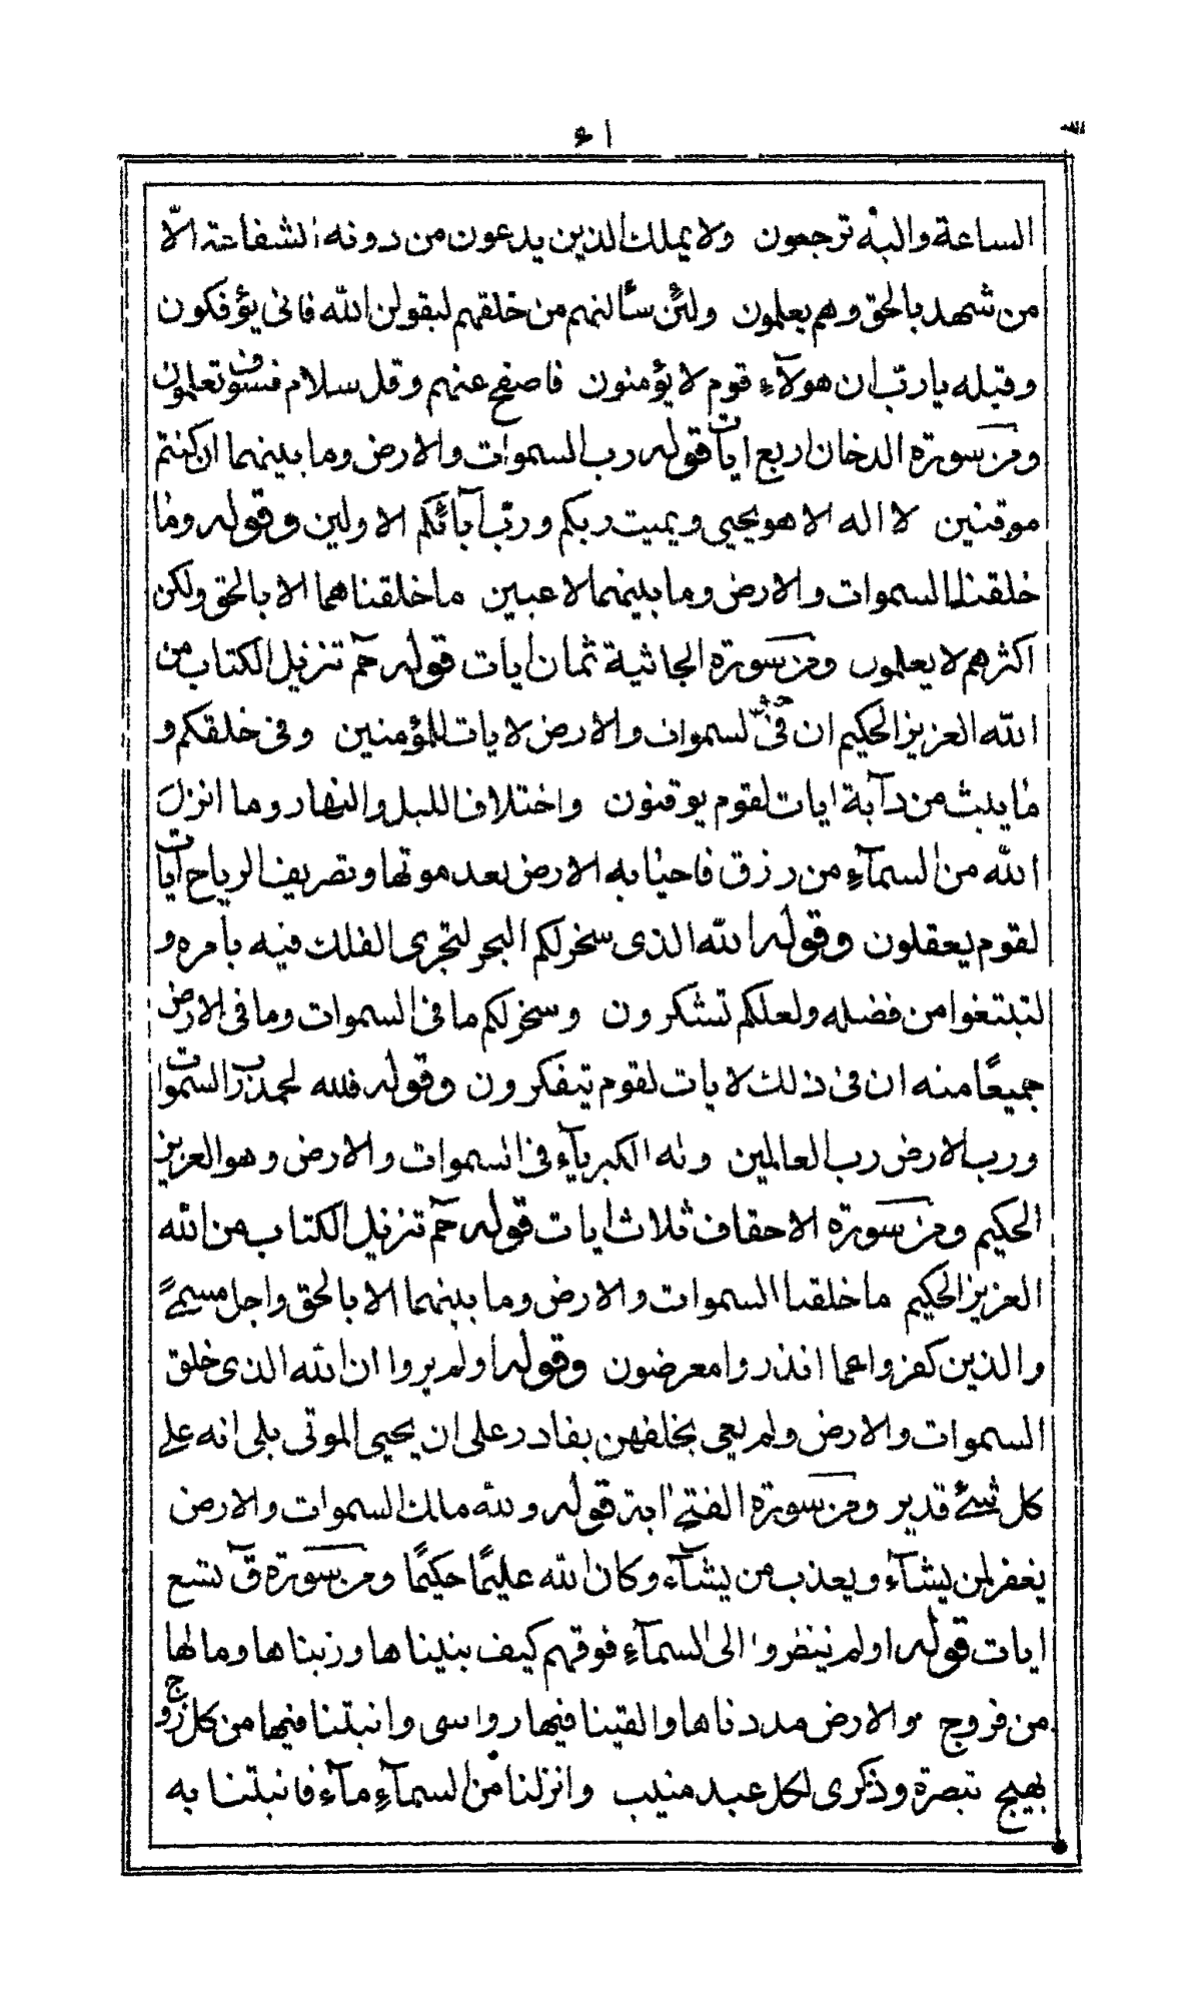 الساعة واليه ترجعون ولا يملك الذين يدعون من دونه الشفاعة الّا
من شهد بالحق وهم يعلمون ولئن سألتهم من خلقهم ليقولن الله فانى يؤفكون
وقيله يا ربّ ان هولآء قوم لا يؤمنون فاصفح عنهم وقل سلام فسوف تعلمون
ومن سورة الدخان اربع ايات قوله رب السموات والارض وما بينهما ان كنتم
موقنين لا اله الا هو يحيي ويميت ربكم وربّ آبائكم الاولين وقوله وما
خلقنا السموات والارض وما بينهما لاعبين ما خلقناهما الا بالحق ولكن
اكثرهم لا يعلمون ومن سورة الجاثية ثمان ايات قوله حمٓ تنزيل الكتاب من
الله العزيز الحكيم ان فى السموات والارض لايات للمؤمنين وفى خلقكم و
ما يبث من دآبة ايات لقوم يوقنون واختلاف الليل والنهار وما انزل
الله من السمآء من رزق فاحيا به الارض بعد موتها وتصريف الرياح ايات
لقوم يعقلون وقوله الله الذى سخر لكم البحر لتجرى الفلك فيه بأمره و
لتبتغوا من فضله ولعلكم تشكرون وسخر لكم ما فى السموات وما فى الارض
جميعًا منه ان فى ذلك لايات لقوم يتفكرون وقوله فلله لحمد رب السموات
ورب الارض رب العالمين وله الكبريآء فى السموات والارض وهو العزيز
الحكيم ومن سورة الاحقاف ثلاث ايات قوله حمٓ تنزيل الكتاب من الله
العزيز الحكيم ما خلقنا السموات والارض وما بينهما الا بالحق واجل مسمىً
والذين كفروا عما انذروا معرضون وقوله اولم يروا ان الله الذى خلق
السموات والارض ولم يعي بخلقهن بقادر على ان يحيى الموتى بلى انه على
كل شئ قدير ومن سورة الفتح اية قوله ولله مالك السموات والارض
يغفر لمن يشآء ويعذب من يشآء وكان الله عليمًا حكيمًا ومن سورة قٓ تسع
ايات قوله اولم ينظروا الى السمآء فوقهم كيف بنيناها وزيناها وما لها
من فروج والارض مددناها والقينا فيها رواسى وانبتنا فيها من كل زوج
بهيج تبصرة وذكرى لكل عبد منيب وانزلنا من السمآء مآء فانبتنا به